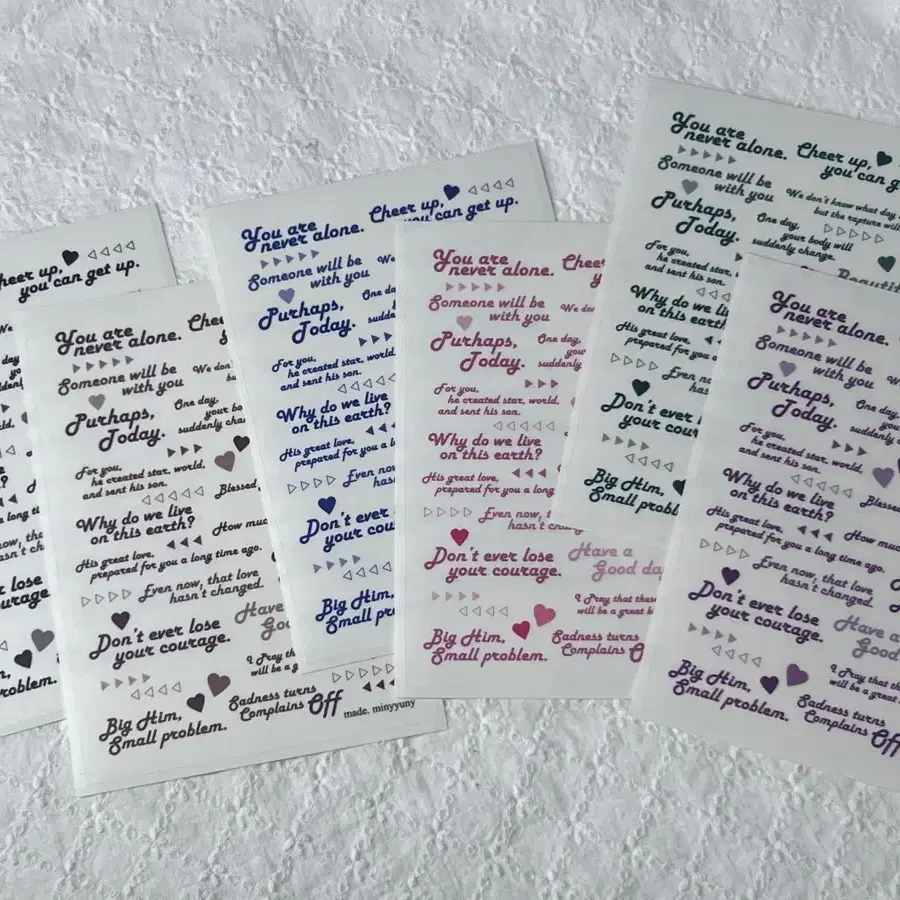 heer up,
you can get up.
You are
never alone.
Someone will be
with you
Purhaps,
Today.
One day,
For you,
he created star, world,
and sent his son.
Blessed
Why do we live
on this earth?
How muc
His great love,
prepared for you a long time ago.
Even now, that love
hasn't changed.
Have
Don't ever lose
your courage.
I Pray th
will be a g
Big Him,
Small problem.
Sadness turns
Complains Off
made. minyyuny
You are
never alone.
Cheer up,
you can get up.
Someone will be
with you
Purhaps,
Today.
For you,
he created star, world,
and sent his son.
Why do we live
on this earth?
His great love,
prepared for you a l
Even now,
Don't ever
your cou
Big Him,
Small pr
You are
never alone.
Someone will be
with you
Purhaps,
Today.
One day,
suddenly
For you,
he created star, world,
and sent his son.
Why do we live
on this earth?
His great love,
prepared for you a long
Even now, t
hasn't
Don't ever lose
your courage.
Have a
Good da
I Pray that these
will be a great b
Big Him,
Small problem.
Sadness turns
Complains O
You are
never alone.
Cheer up,
you can g
Someone will be
with you
We don't know what day
but the rapture will
Purhaps,
Today.
One day,
your body will
suddenly change.
For you,
he created star,
and sent his son.
Why do we liv
on this earth
His great love,
prepared for you a
Even no
Don't ever
your cour
Big Him,
Small probl
You are
never alone.
Someone will be
with you
Purhaps,
Today.
One day,
For you,
he created star, world,
and sent his son.
Blesse
Why do we live
on this earth?
How muc
His great love,
prepared for you a long time ago.
Even now, that love
hasn't changed.
Don't ever lose
your courage.
Have a
Good
I Pray that th
will be a great
Big Him,
Small problem.
Sadness turns
Complains Off